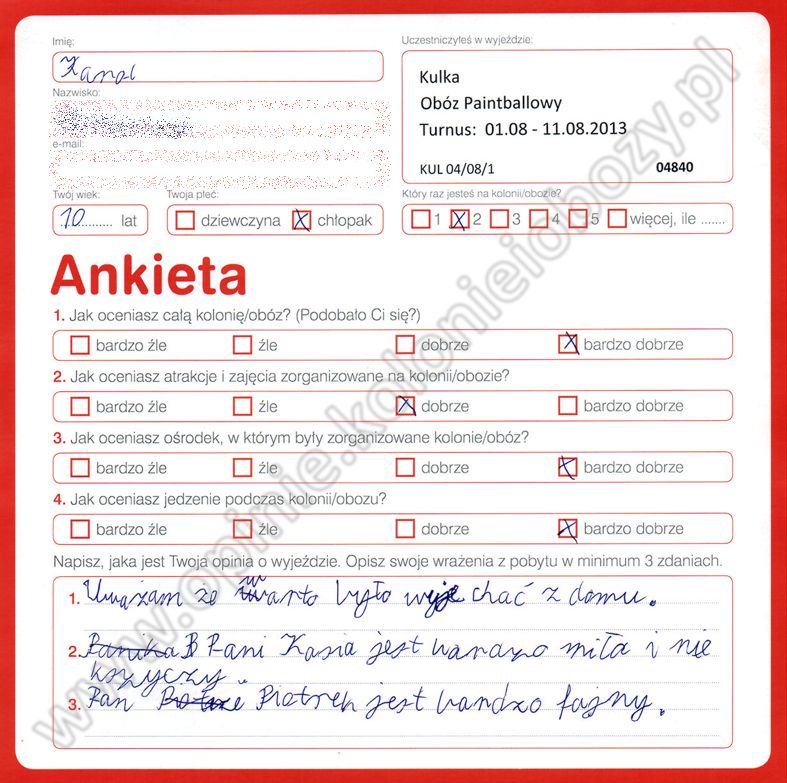 Imię:
Karol
Nazwisko:
e-mail:
Twój wiek:
10 lat
Twoja płeć:
dziewczyna X chłopak
Uczestniczyłeś w wyjeździe:
Kulka
Obóz Paintballowy
Turnus: 01.08 - 11.08.2013
KUL 04/08/1 04840
Który raz jesteś na kolonii/obozie?
1 X 2 3 4 5 więcej, ile .......
Ankieta
1. Jak oceniasz całą kolonię/obóz? (Podobało Ci się?)
bardzo źle źle dobrze X bardzo dobrze
2. Jak oceniasz atrakcje i zajęcia zorganizowane na kolonii/obozie?
bardzo źle źle X dobrze bardzo dobrze
3. Jak oceniasz ośrodek, w którym były zorganizowane kolonie/obóz?
bardzo źle źle dobrze X bardzo dobrze
4. Jak oceniasz jedzenie podczas kolonii/obozu?
bardzo źle źle dobrze X bardzo dobrze
Napisz, jaka jest Twoja opinia o wyjeździe. Opisz swoje wrażenia z pobytu w minimum 3 zdaniach.
1. Uważam że warto było wyjechać z domu.
2. Pani Kasia jest bardzo miła i nie
kszyczy.
3. Pan Piotrek jest bardzo fajny.
www.opinie.kolonieiobozy.pl